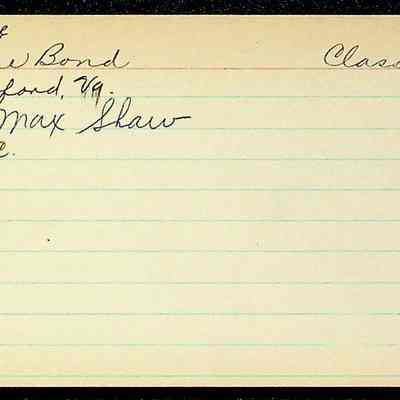 e Bond Class
ford, Va.
Max Shaw
C.